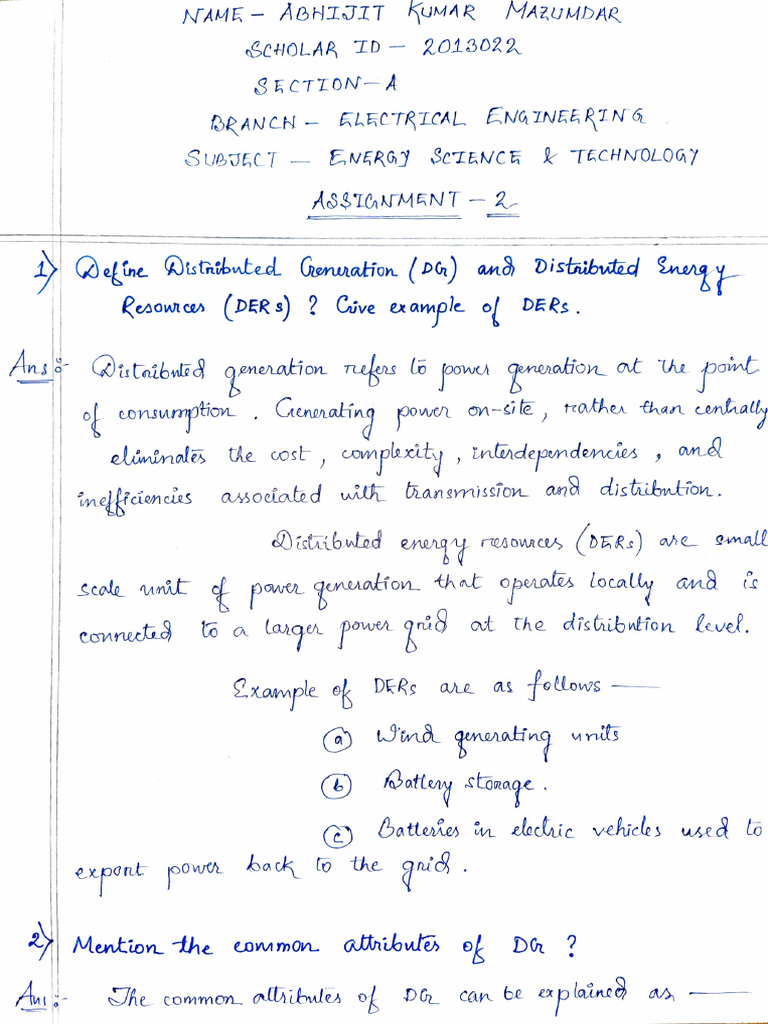 NAME - ABHIJIT KUMAR MAZUMDAR
SCHOLAR ID - 2013022
SECTION - A
BRANCH - ELECTRICAL ENGINEERING
SUBJECT - ENERGY SCIENCE & TECHNOLOGY
ASSIGNMENT - 2
1) Define Distributed Generation (DG) and Distributed Energy
Resources (DERs) ? Give example of DERs.
Ans :- Distributed generation refers to power generation at the point
of consumption. Generating power on-site, rather than centrally
eliminates the cost, complexity, interdependencies, and
inefficiencies associated with transmission and distribution.
Distributed energy resources (DERs) are small
scale unit of power generation that operates locally and is
connected to a larger power grid at the distribution level.
Example of DERs are as follows —
(a) Wind generating units
(b) Battery storage.
(c) Batteries in electric vehicles used to
export power back to the grid.
2) Mention the common attributes of DG ?
Ans :- The common attributes of DG can be explained as, —